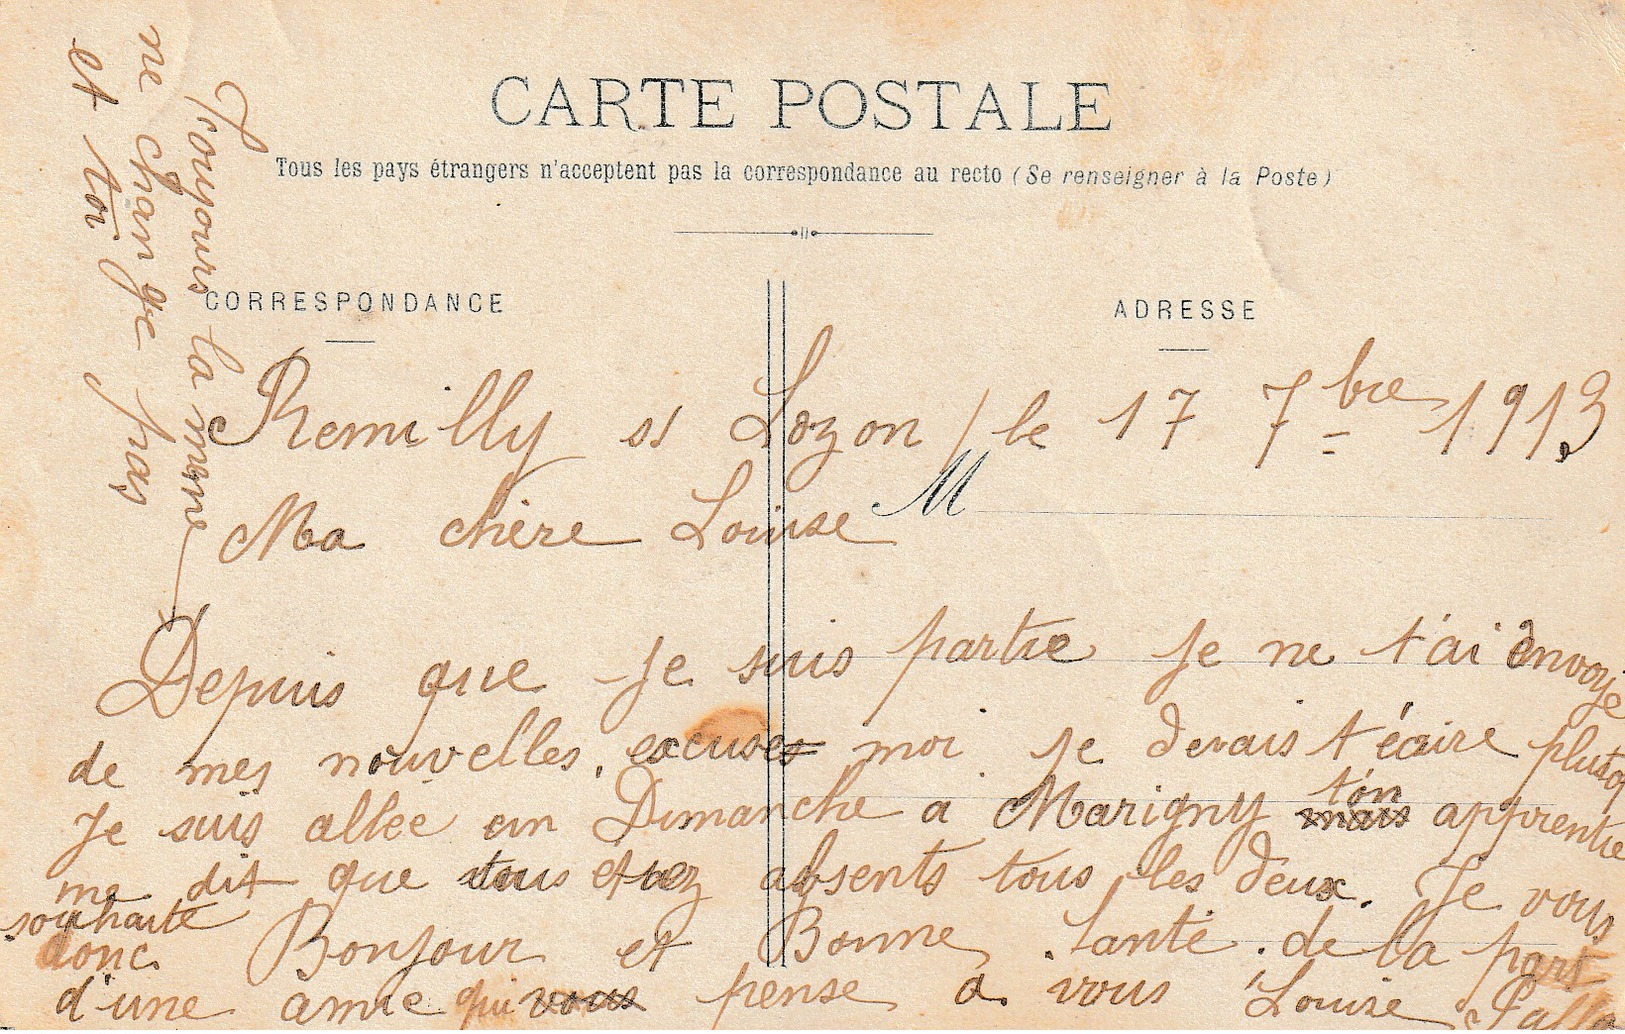 CARTE POSTALE
Tous les pays étrangers n'acceptent pas la correspondance au recto (Se renseigner à la Poste)
CORRESPONDANCE
ADRESSE
M
Remilly s/ Lozon / le 17 7bre 1913
Ma chère Louise
Depuis que je suis partie je ne t'ai envoyé
de mes nouvelles, excuses moi je devais t'écrire plutot
Je suis allée un Dimanche a Marigny ton apprentie
me dit que vous etiez absents tous les deux. Je vous
souhaite
donc Bonjour et Bonne Santé de la part
d'une amie qui vous pense a vous Louise
Toujours la meme
ne change pas
et toi